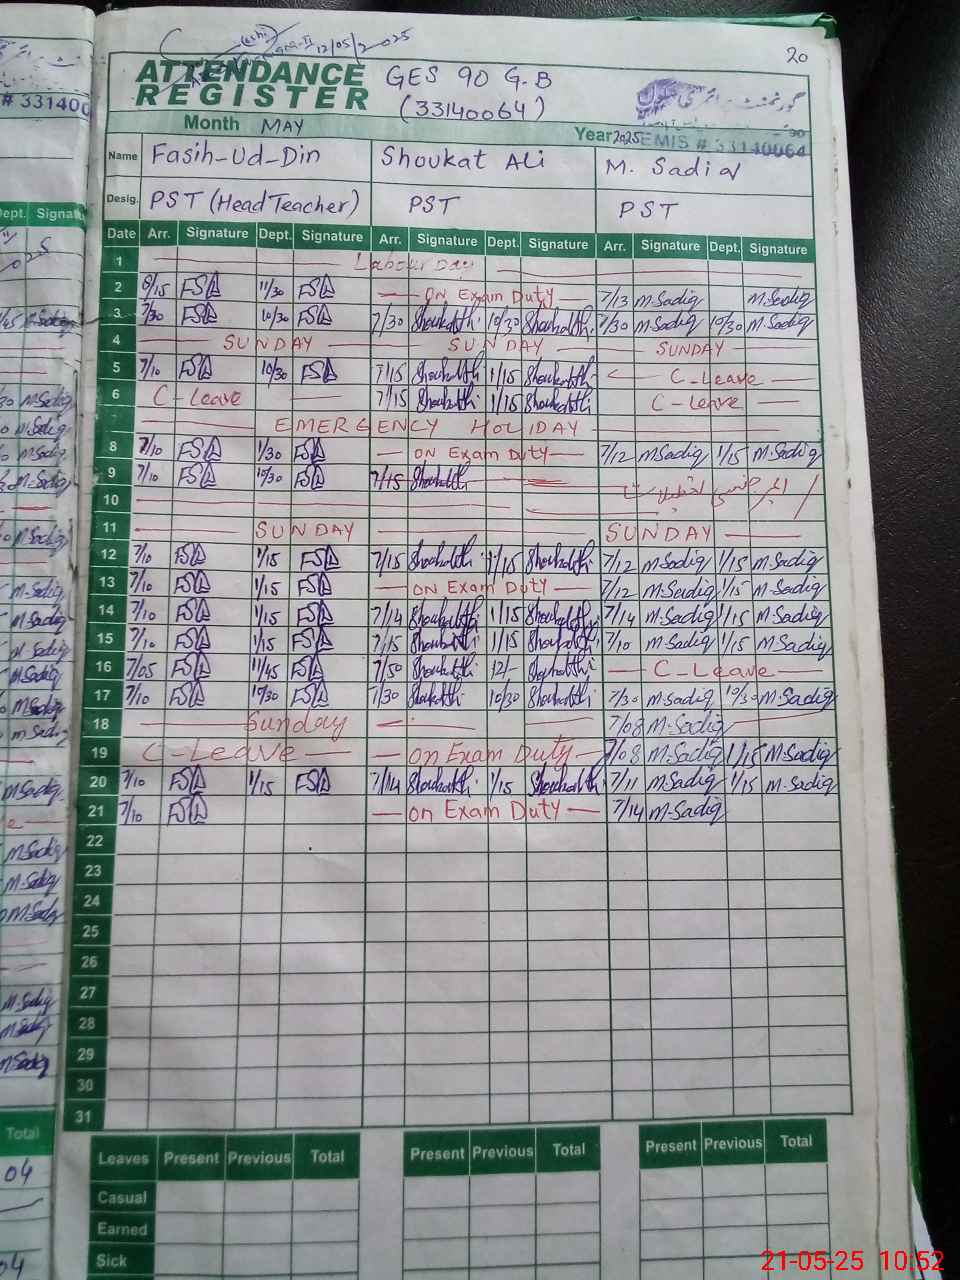 20
12/05/2025
ATTENDANCE REGISTER
GES 90 G.B
(33140064)
Month MAY
Year 2025 EMIS # 33140064
Name Fasih-Ud-Din Shoukat Ali M. Sadiq
Desig. PST (Head Teacher) PST PST
Date Arr. Signature Dept. Signature Arr. Signature Dept. Signature Arr. Signature Dept. Signature
1 Labour Day
2 8/15 11/30 On Exam Duty 7/13 M.Sadiq M.Sadiq
3 7/30 10/30 7/30 10/30 7/30 M.Sadiq 10/30 M.Sadiq
4 SUNDAY SUNDAY SUNDAY
5 7/10 10/30 7/15 1/15 C-Leave
6 C-Leave 7/15 1/15 C-Leave
EMERGENCY HOLIDAY
8 7/10 1/30 on Exam Duty 7/12 M.Sadiq 1/15 M.Sadiq
9 7/10 10/30 7/15
10
11 SUNDAY SUNDAY
12 7/10 1/15 7/15 1/15 7/12 M.Sadiq 1/15 M.Sadiq
13 7/10 1/15 on Exam Duty 7/12 M.Sadiq 1/15 M.Sadiq
14 7/10 1/15 7/14 1/15 7/14 M.Sadiq 1/15 M.Sadiq
15 7/10 1/15 7/15 1/15 7/10 M.Sadiq 1/15 M.Sadiq
16 7/05 11/45 7/50 12/- C-Leave
17 7/10 10/30 7/30 10/30 7/30 M.Sadiq 10/30 M.Sadiq
18 Sunday 7/08 M.Sadiq
19 C-Leave on Exam Duty 7/08 M.Sadiq 1/15 M.Sadiq
20 7/10 1/15 7/14 1/15 7/11 M.Sadiq 1/15 M.Sadiq
21 7/10 on Exam Duty 7/14 M.Sadiq
22
23
24
25
26
27
28
29
30
31
Leaves Present Previous Total Present Previous Total Present Previous Total
Casual
Earned
Sick
# 33140
Dept. Signat
Total
04
04
21-05-25 10:52